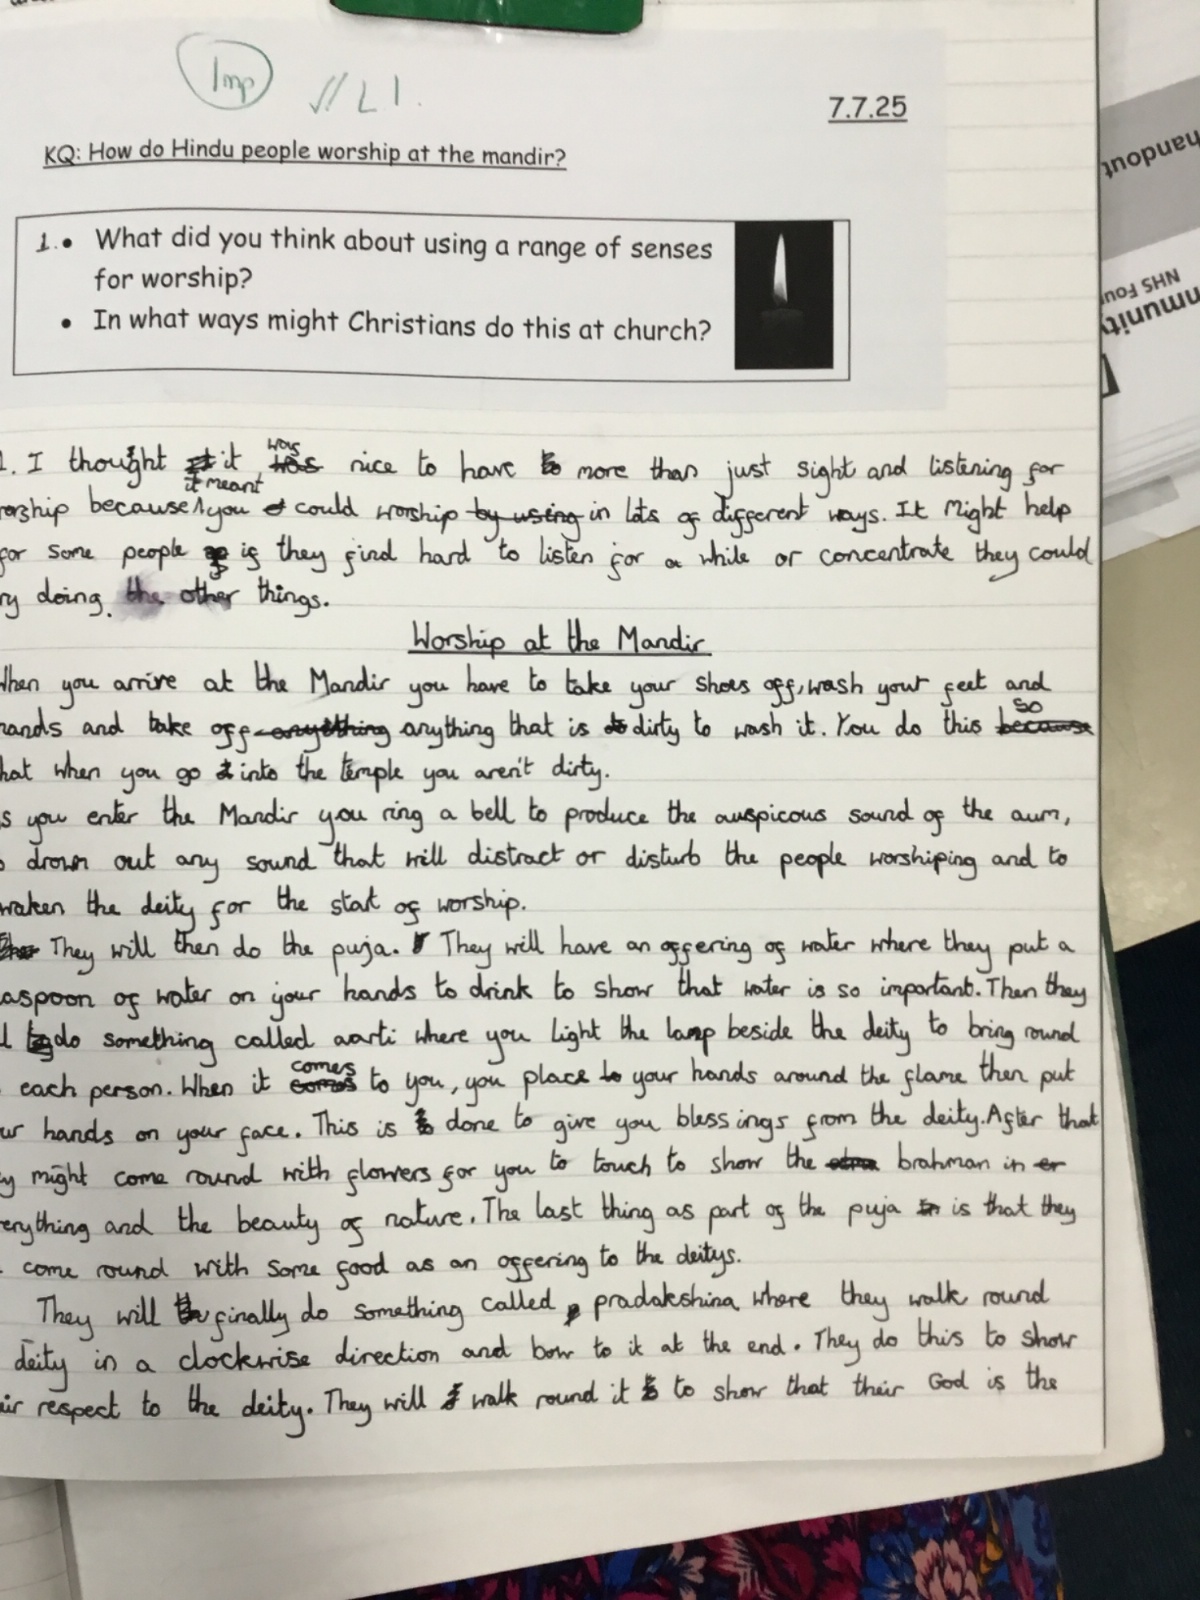 Imp
L1.
7.7.25
KQ: How do Hindu people worship at the mandir?
1. • What did you think about using a range of senses
for worship?
• In what ways might Christians do this at church?
1. I thought it was nice to have more than just sight and listening for
worship because it meant you could worship by using in lots of different ways. It Might help
for some people if they find hard to listen for a while or concentrate they could
doing the other things.
Worship at the Mandir
When you arrive at the Mandir you have to take your shoes off, wash your feet and
hands and take off anything anything that is dirty to wash it. You do this because so
that when you go into the temple you aren't dirty.
you enter the Mandir you ring a bell to produce the auspicous sound of the aum,
drown out any sound that will distract or disturb the people worshiping and to
waken the deity for the start of worship.
They will then do the puja. They will have an offering of water where they put a
aspoon of water on your hands to drink to show that water is so important. Then they
do something called aarti where you light the lamp beside the deity to bring round
each person. When it comes to you, you place your hands around the flame then put
ur hands on your face. This is done to give you blessings from the deity. After that
might come round with flowers for you to touch to show the brahman in
erything and the beauty of nature. The last thing as part of the puja is that they
come round with some food as an offering to the deitys.
They will finally do something called pradakshina where they walk round
deity in a clockwise direction and bow to it at the end. They do this to show
eir respect to the deity. They will walk round it to show that their God is the
handout
NHS Fou
mmunity